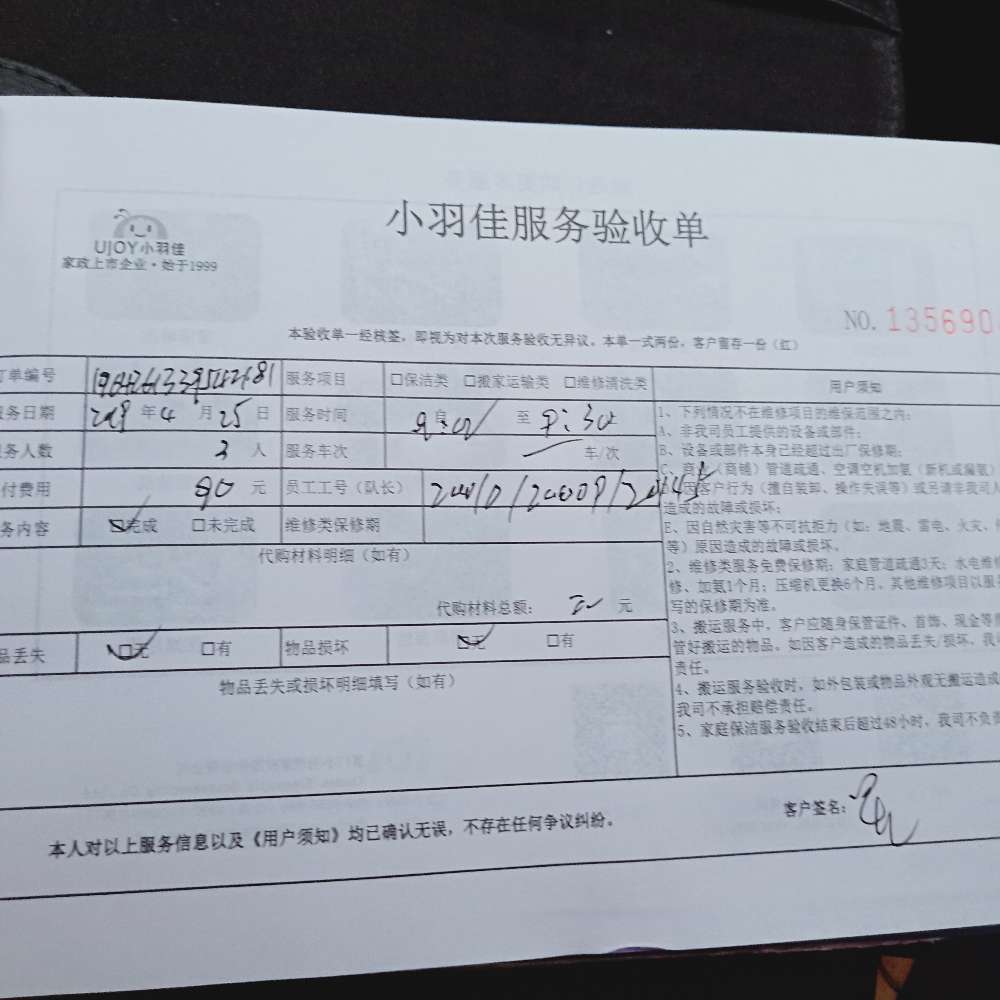 小羽佳服务验收单
UJOY小羽佳
家政上市企业·始于1999
NO. 135690
本验收单一经核签，即视为对本次服务验收无异议。本单一式两份，客户留存一份（红）
订单编号 服务项目 □保洁类 □搬家运输类 □维修清洗类 用户须知
服务日期 年 4 月 25 日 服务时间 自 至 9:30
服务人数 3 人 服务车次 车/次
付费用 90 元 员工工号（队长）
务内容 ☑完成 □未完成 维修类保修期
代购材料明细（如有）
代购材料总额： 元
品丢失 ☑无 □有 物品损坏 ☑无 □有
物品丢失或损坏明细填写（如有）
1、下列情况不在维修项目的维保范围之内：
A、非我司员工提供的设备或部件；
B、设备或部件本身已经超过出厂保修期；
C、商业（商铺）管道疏通、空调空机加氨（新机或漏氨）
因客户行为（擅自装卸、操作失误等）或另请非我司人
造成的故障或损坏；
E、因自然灾害等不可抗拒力（如：地震、雷电、火灾、
等）原因造成的故障或损坏。
2、维修类服务免费保修期：家庭管道疏通3天；水电维修
修、加氨1个月；压缩机更换6个月，其他维修项目以服
写的保修期为准。
3、搬运服务中，客户应随身保管证件、首饰、现金等
管好搬运的物品。如因客户造成的物品丢失/损坏，我
责任。
4、搬运服务验收时，如外包装或物品外观无搬运造成
我司不承担赔偿责任。
5、家庭保洁服务验收结束后超过48小时，我司不负责
本人对以上服务信息以及《用户须知》均已确认无误，不存在任何争议纠纷。
客户签名：